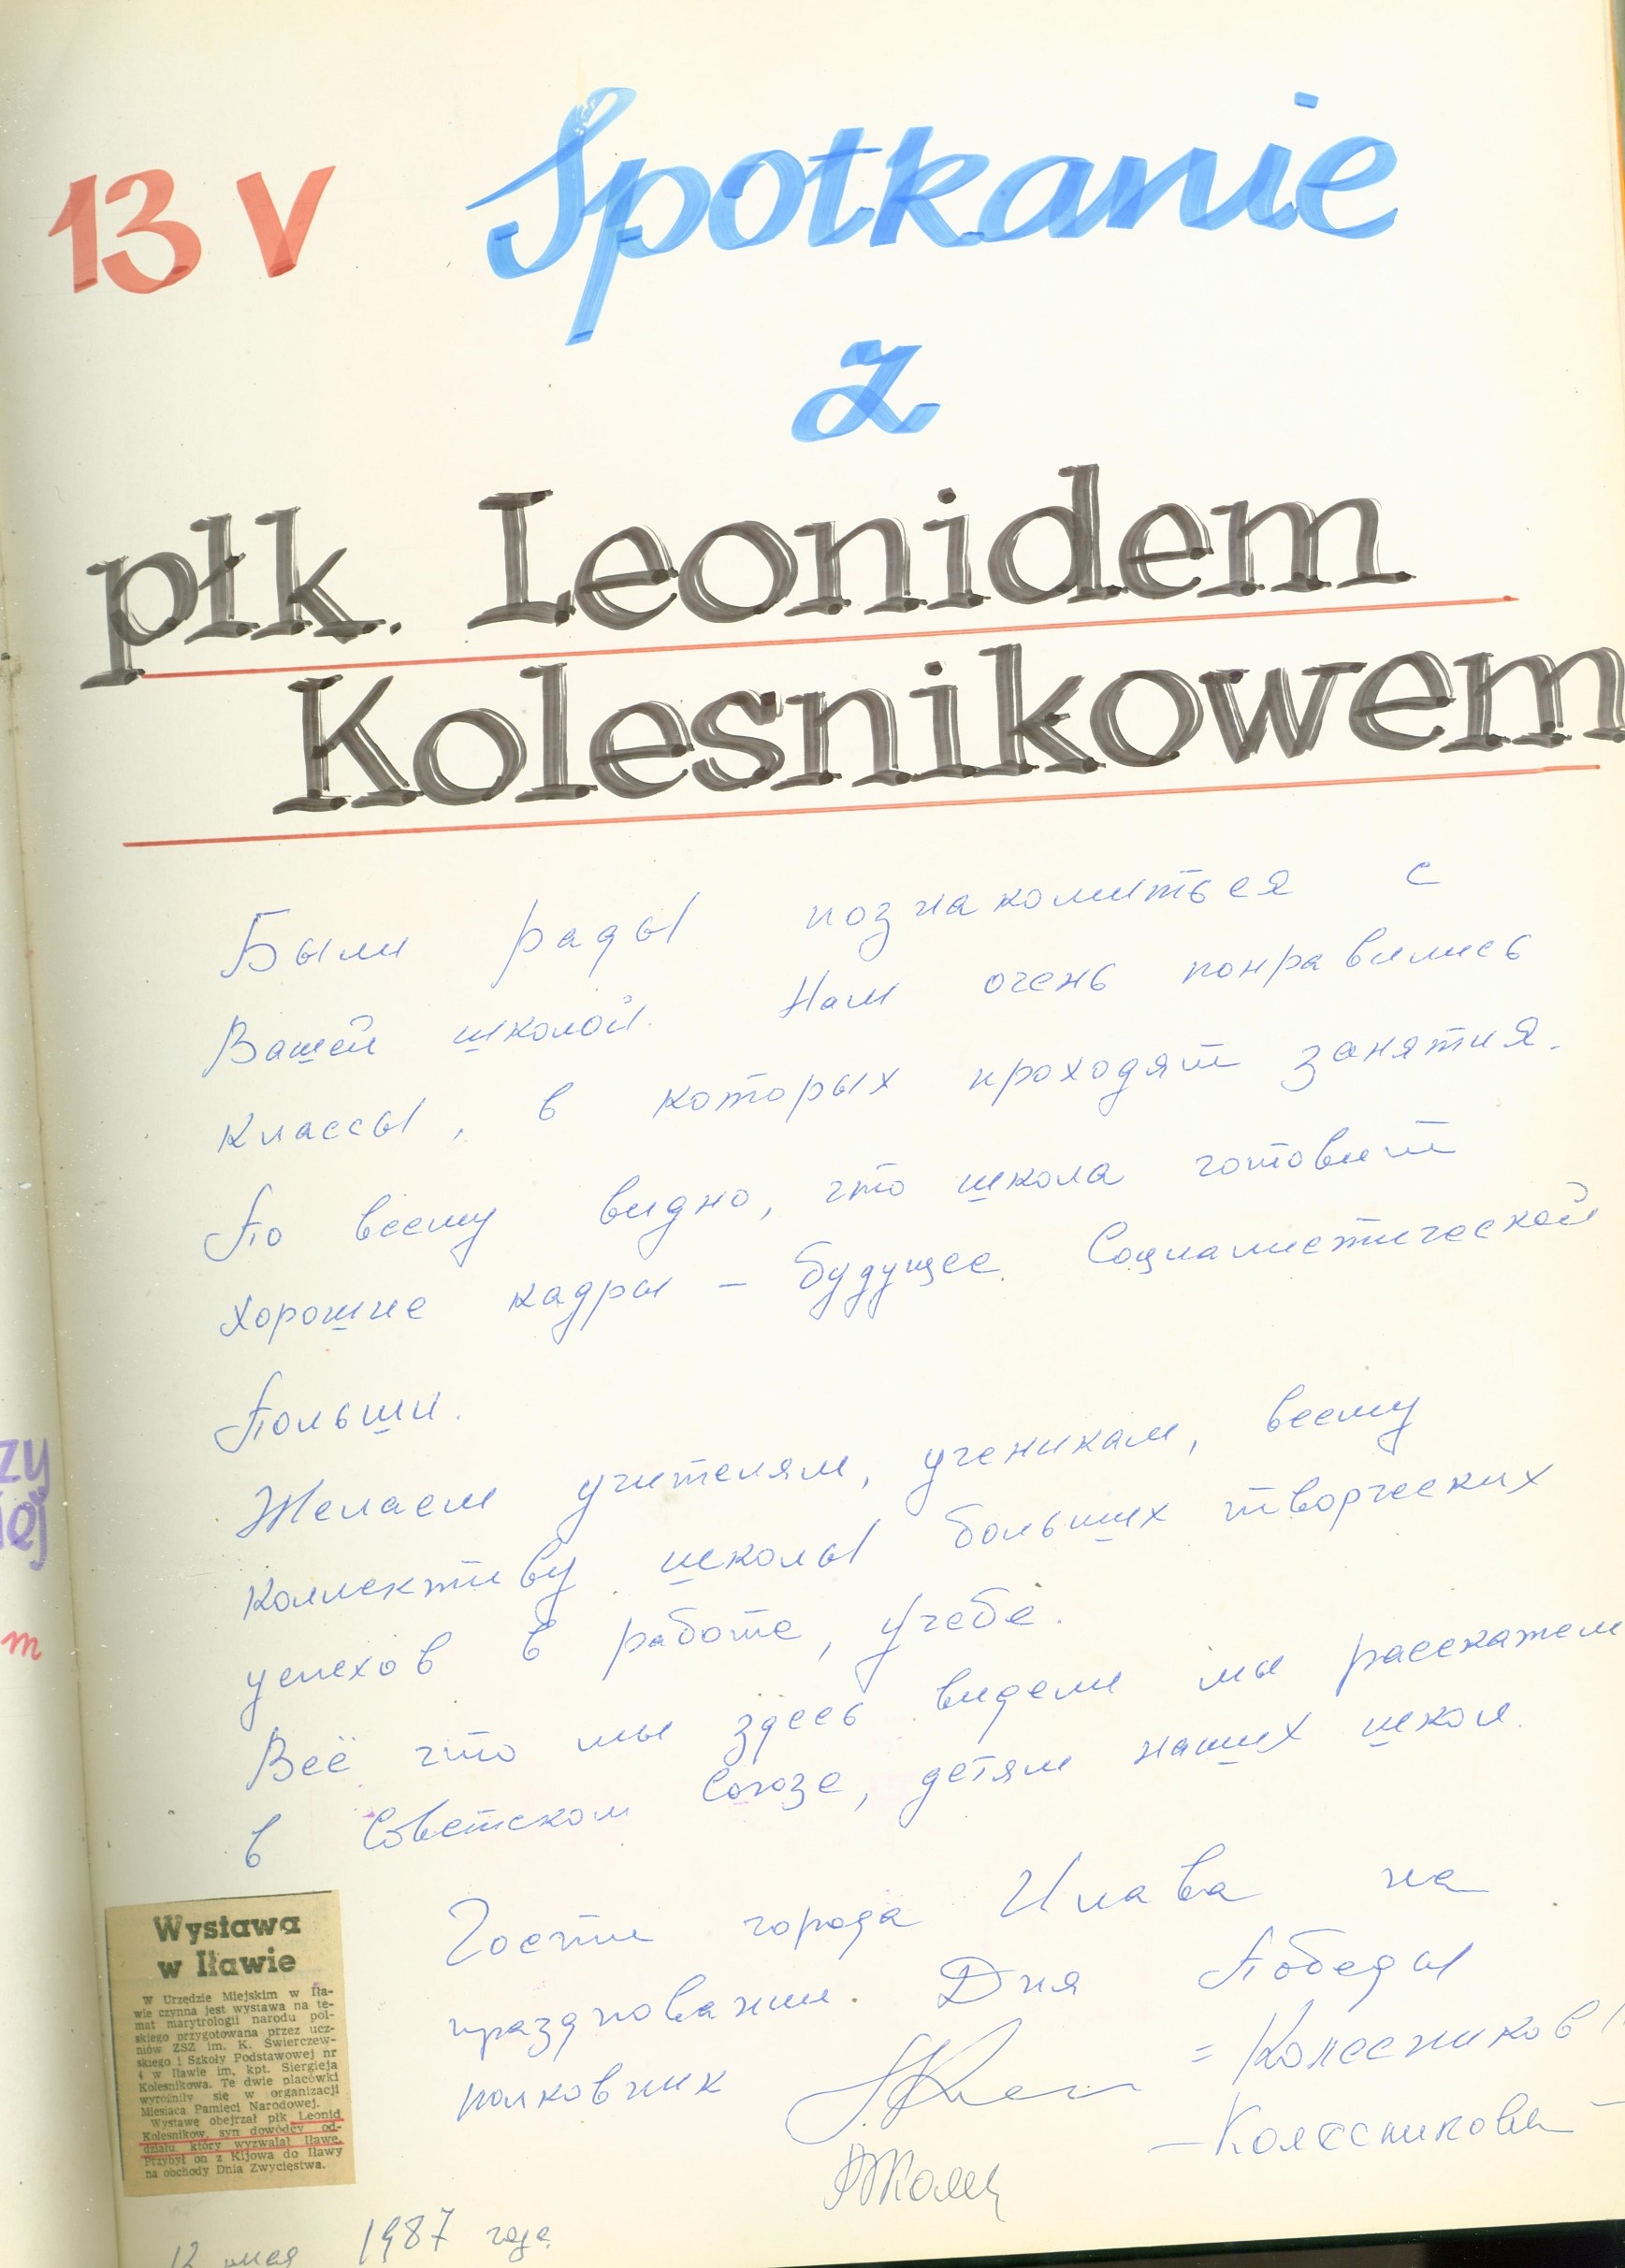 13 V Spotkanie
z
płk. Leonidem
Kolesnikowem
Были рады познакомиться с
Вашей школой. Нам очень понравились
классы, в которых проходят занятия.
По всему видно, что школа готовит
хорошие кадры – будущее Социалистической
Польши.
Желаем учителям, ученикам, всему
коллективу школы больших творческих
успехов в работе, учебе.
Всё что мы здесь видели мы расскажем
в Советском Союзе, детям наших школ.
Гости города Илава на
праздновании Дня Победы
полковник = Колесников
– Колесникова –
12 мая 1987 года
Wystawa
w Iławie
W Urzędzie Miejskim w Iła-
wie czynna jest wystawa na te-
mat marytrologii narodu pol-
skiego przygotowana przez ucz-
niów ZSZ im. K. Świerczew-
skiego i Szkoły Podstawowej nr
4 w Iławie im. kpt. Siergieja
Kolesnikowa. Te dwie placówki
wyróżniły się w organizacji
Miesiąca Pamięci Narodowej.
Wystawę obejrzał płk Leonid
Kolesnikow, syn dowódcy od-
działu, który wyzwalał Iławę.
Przybył on z Kijowa do Iławy
na obchody Dnia Zwycięstwa.
zy
iej
m